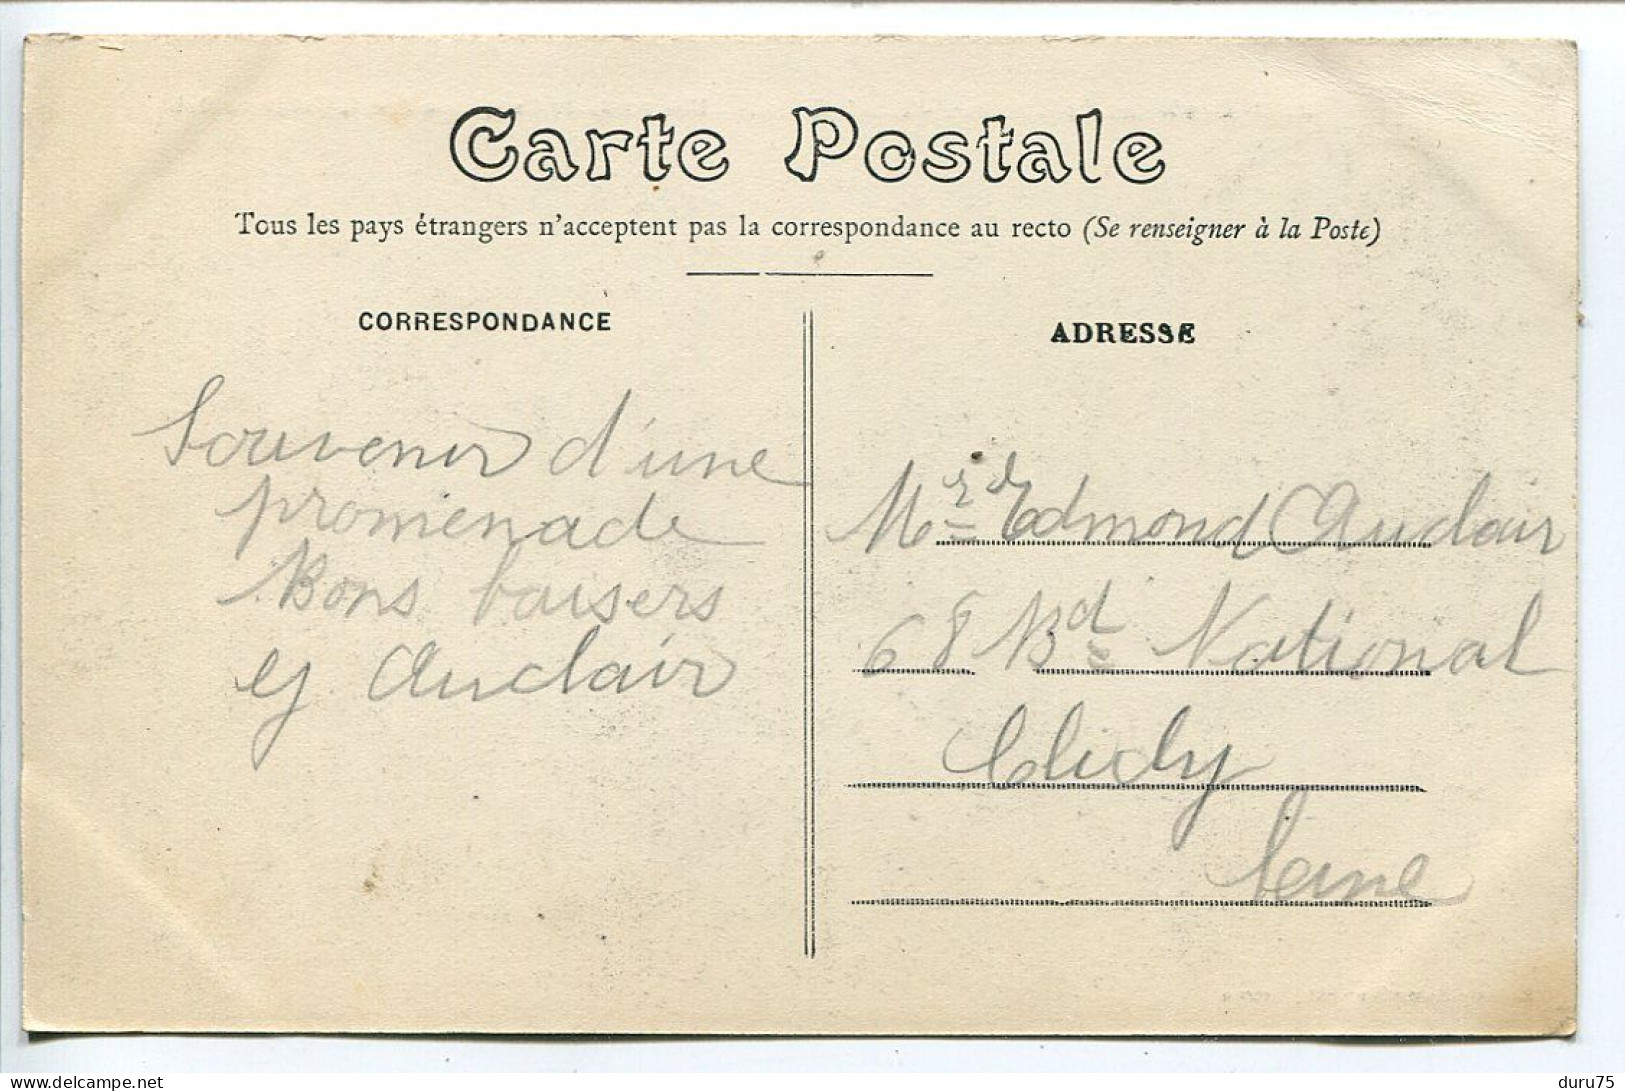 Carte Postale
Tous les pays étrangers n'acceptent pas la correspondance au recto (Se renseigner à la Poste)
CORRESPONDANCE
Souvenir d'une
promenade
Bons baisers
ej Auclair
ADRESSE
Mr Edmond Auclair
68 Bd National
Clichy
Seine
delcampe.net
duru75